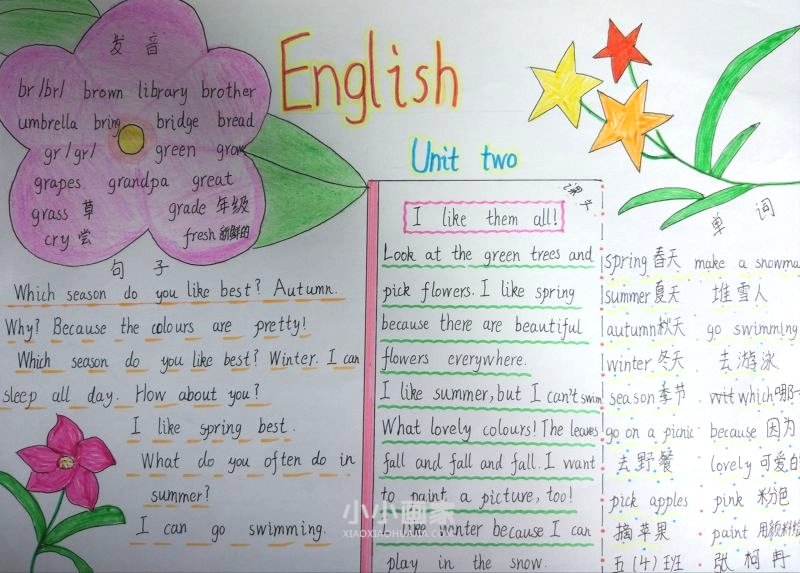 English
Unit two
发音
br /br/ brown library brother
umbrella bring bridge bread
gr /gr/ green grow
grapes grandpa great
grass 草 grade 年级
cry 尝 fresh 新鲜的
句子
Which season do you like best? Autumn.
Why? Because the colours are pretty!
Which season do you like best? Winter. I can
sleep all day. How about you?
I like spring best.
What do you often do in
summer?
I can go swimming.
课文
I like them all!
Look at the green trees and
pick flowers. I like spring
because there are beautiful
flowers everywhere.
I like summer, but I can't swim
What lovely colours! The leaves
fall and fall and fall. I want
to paint a picture, too!
I like winter because I can
play in the snow.
单词
spring 春天 make a snowma
summer 夏天 堆雪人
autumn 秋天 go swimming
winter 冬天 去游泳
season 季节 which 哪
go on a picnic because 因为
去野餐 lovely 可爱的
pick apples pink 粉色
摘苹果 paint 用颜料绘
五(4)班 张柯冉
小小画家
XIAOXIAOHUAJIA.COM